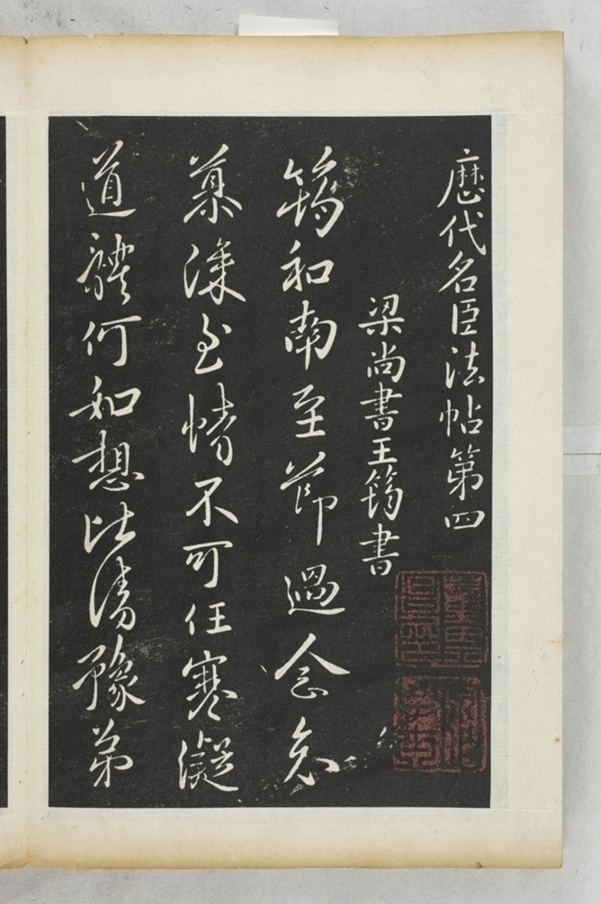 歷代名臣法帖第四
梁尚書王筠書
筠和南至節過念念
慕深至情不可任寒凝
道體何如想比清豫弟